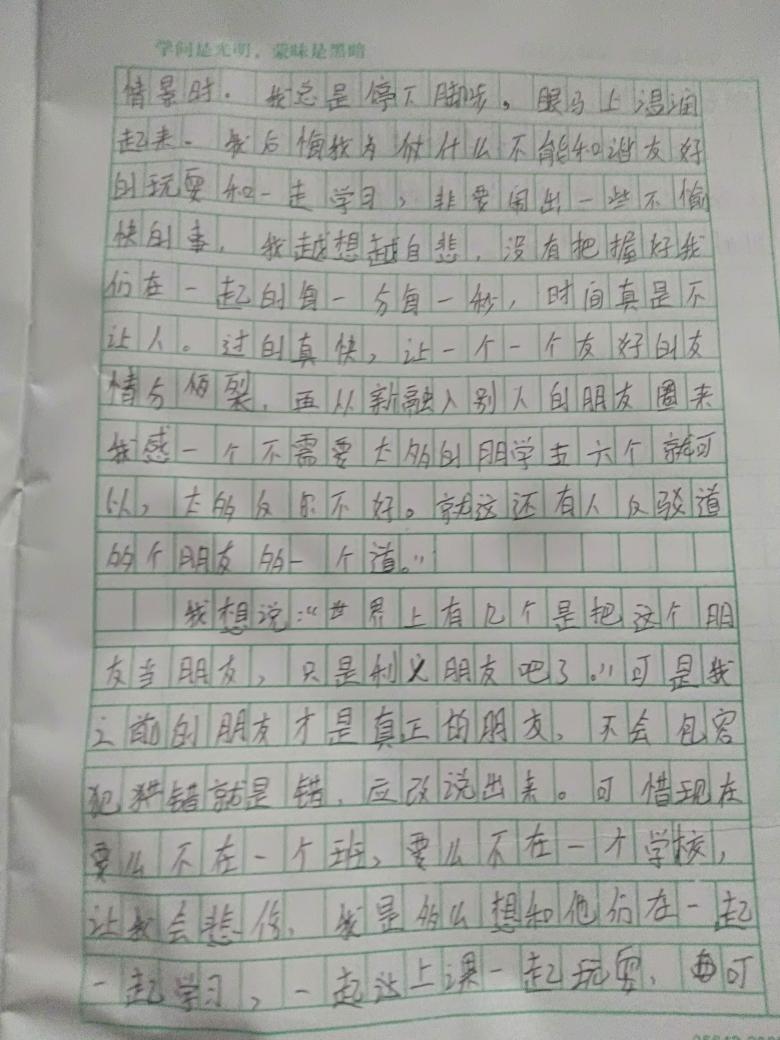 学问是光明，蒙昧是黑暗
情景时。我总是停下脚步，眼马上湿润
起来。我后悔我为什什么不能和谐友好
的玩耍和一走学习，非要闹出一些不愉
快的事，我越想越自悲，没有把握好我
们在一起的每一分每一秒，时间真是不
让人。过的真快，让一个一个友好的友
情分俩裂，再从新融入别人的朋友圈来
我感一个不需要太多的朋学五六个就可
以，太多反尔不好。就这还有人反驳道
多个朋友多一个道。”
我想说：“世界上有几个是把这个朋
友当朋友，只是利义朋友吧了。”可是我
之前的朋友才是真正的朋友，不会包容
犯错就是错，应改说出来。可惜现在
要么不在一个班，要么不在一个学校，
让我会悲伤，我是多么想和他们在一起
一起学习，一起上课一起玩耍，可